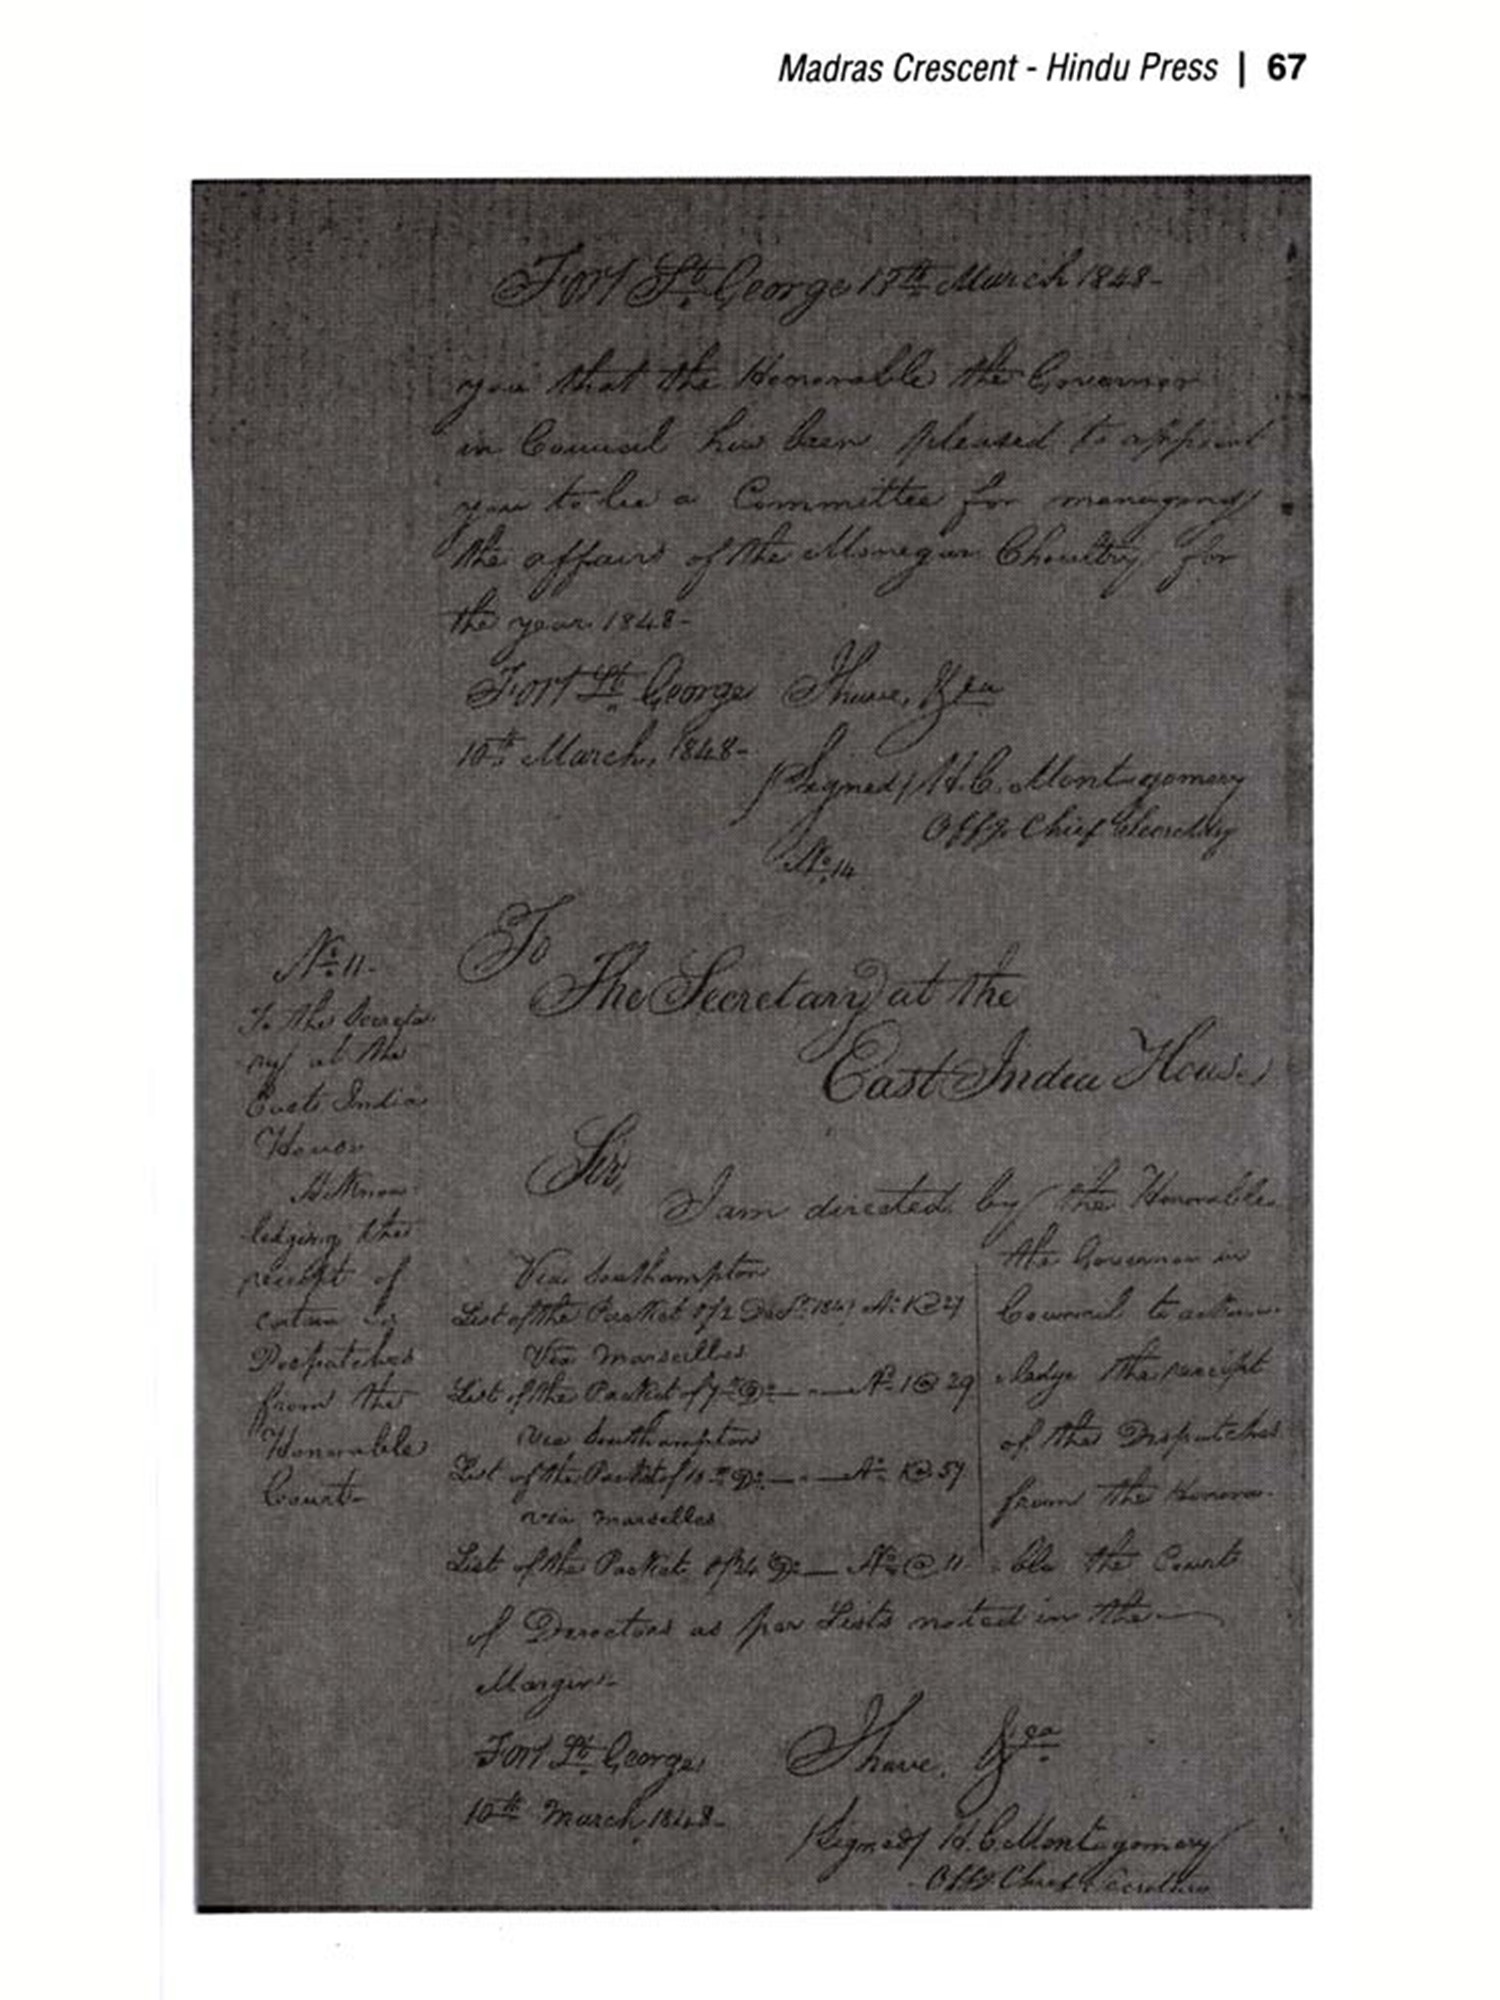 Madras Crescent - Hindu Press | 67
Fort St. George 13th March 1848-
you that the Honorable the Governor
in Council has been pleased to appoint
you to be a Committee for managing
the affairs of the Monegar Choultry for
the year 1848-
Fort St. George I have, &ca
10th March, 1848-
/Signed/ H.C. Montgomery
Offg. Chief Secretary
No. 14
No. 11-
To the Secreta
ry at the
East India
House
Acknow
ledging the
receipt of
certain
Despatches
from the
Honorable
Court-
To
The Secretary at the
East India House
Sir,
I am directed by the Honorable
Via Southampton
List of the Packet of 2 Decr. 1847 No. 1 @ 27
Via Marseilles
List of the Packet of 7th Do. — No. 1 @ 29
Via Southampton
List of the Packet of Do. — No. 1 @ 57
via Marseilles
List of the Packet of 24 Do. — No. @ 11
the Governor in
Council to acknow-
ledge the receipt
of the Despatches
from the Honora-
ble the Court
of Directors as per Lists noted in the
Margin-
Fort St. George I have, &ca
10th March, 1848-
/Signed/ H.C. Montgomery
Offg. Chief Secretary